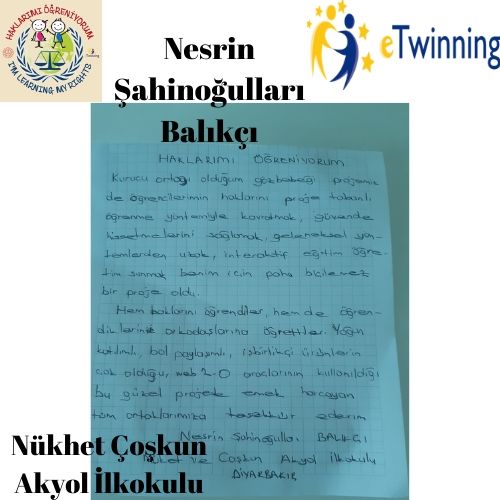 HAKLARIMI ÖĞRENİYORUM
I'M LEARNING MY RIGHTS
eTwinning
Nesrin
Şahinoğulları
Balıkçı
HAKLARIMI ÖĞRENİYORUM
Kurucu ortağı olduğum gözbebeği projemiz
de öğrencilerimin haklarını proje tabanlı
öğrenme yöntemiyle kavratmak, güvende
hissetmelerini sağlamak, geleneksel yön-
temlerden uzak, interaktif eğitim öğre-
tim sunmak benim için paha biçilemez
bir proje oldu.
Hem haklarını öğrendiler, hem de öğren-
diklerini arkadaşlarına öğrettiler. Yoğun
katılımlı, bol paylaşımlı, işbirlikçi ürünlerin
çok olduğu, web 2.0 araçlarının kullanıldığı
bu güzel projede emek harcayan
tüm ortaklarımıza teşekkür ederim
Nesrin Şahinoğulları BALIKÇI
Nükhet ve Coşkun Akyol İlkokulu
DİYARBAKIR
Nükhet Çoşkun
Akyol İlkokulu